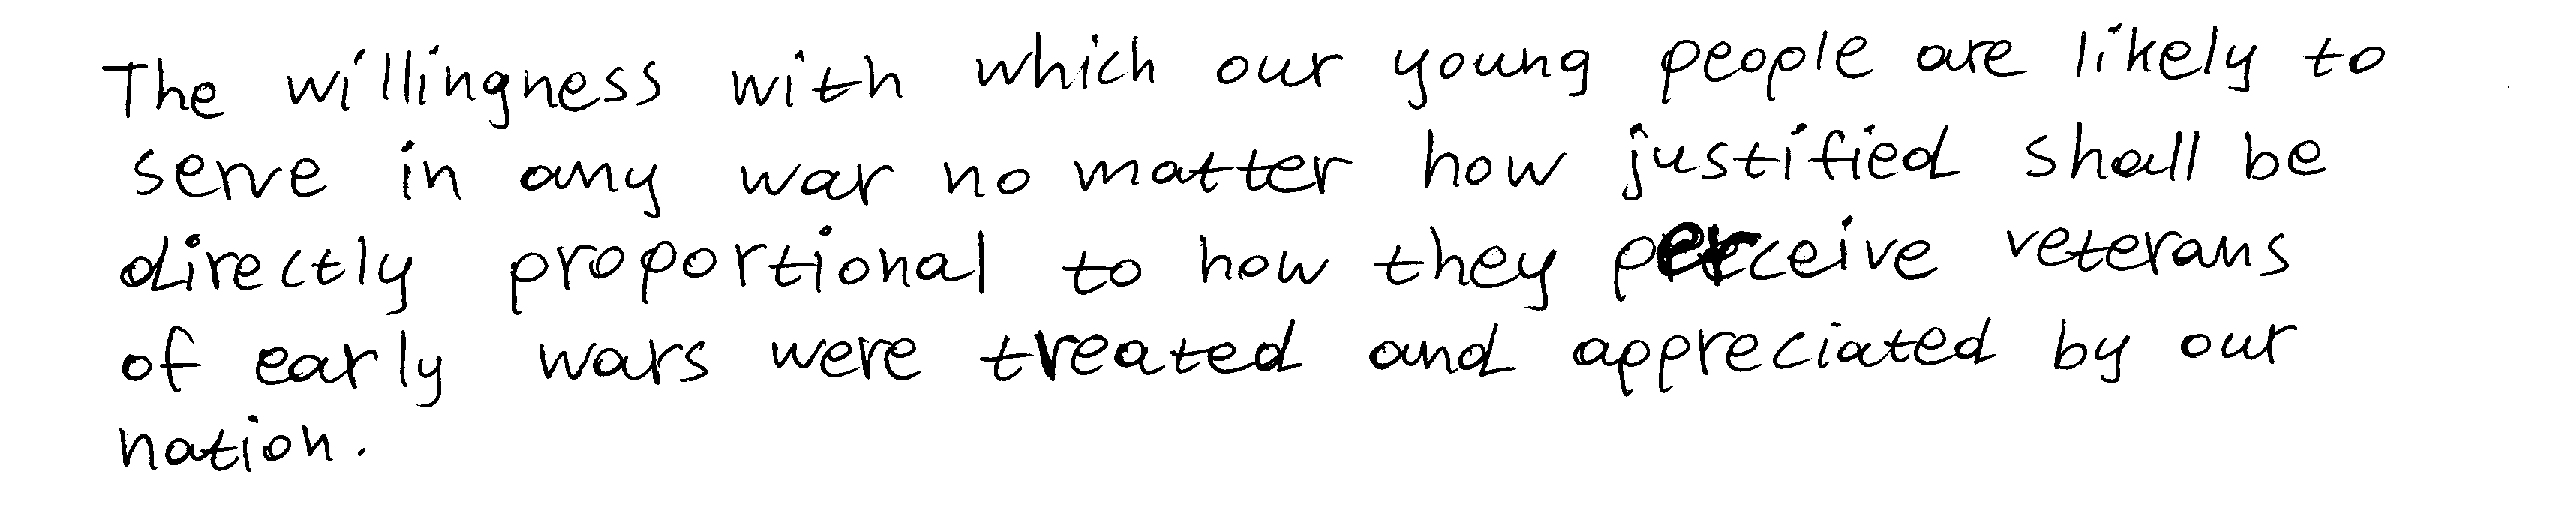 The willingness with which our young people are likely to
serve in any war no matter how justified shall be
directly proportional to how they perceive veterans
of early wars were treated and appreciated by our
nation.